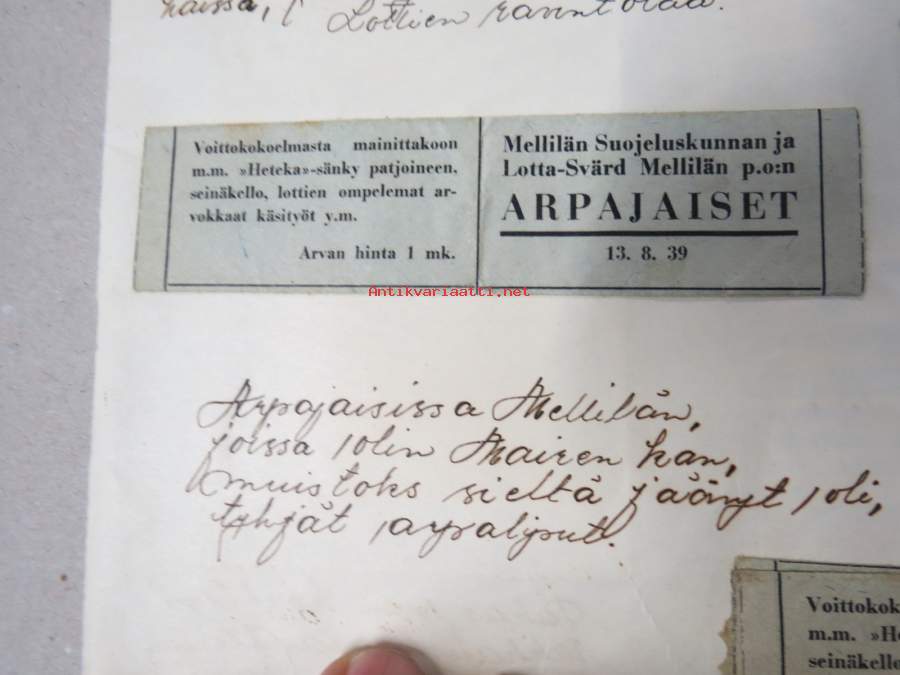 kaissa,
Lottien ravintolaa.
Voittokokoelmasta mainittakoon
m.m. »Heteka»-sänky patjoineen,
seinäkello, lottien ompelemat ar-
vokkaat käsityöt y.m.
Arvan hinta 1 mk.
Mellilän Suojeluskunnan ja
Lotta-Svärd Mellilän p.o:n
ARPAJAISET
13. 8. 39
Antikvariaatti.net
Arpajaisissa Mellilän,
joissa olin Mairen kan,
muistoks sieltä jäänyt oli,
tyhjät arpaliput.
Voittokok
m.m. »He
seinäkello